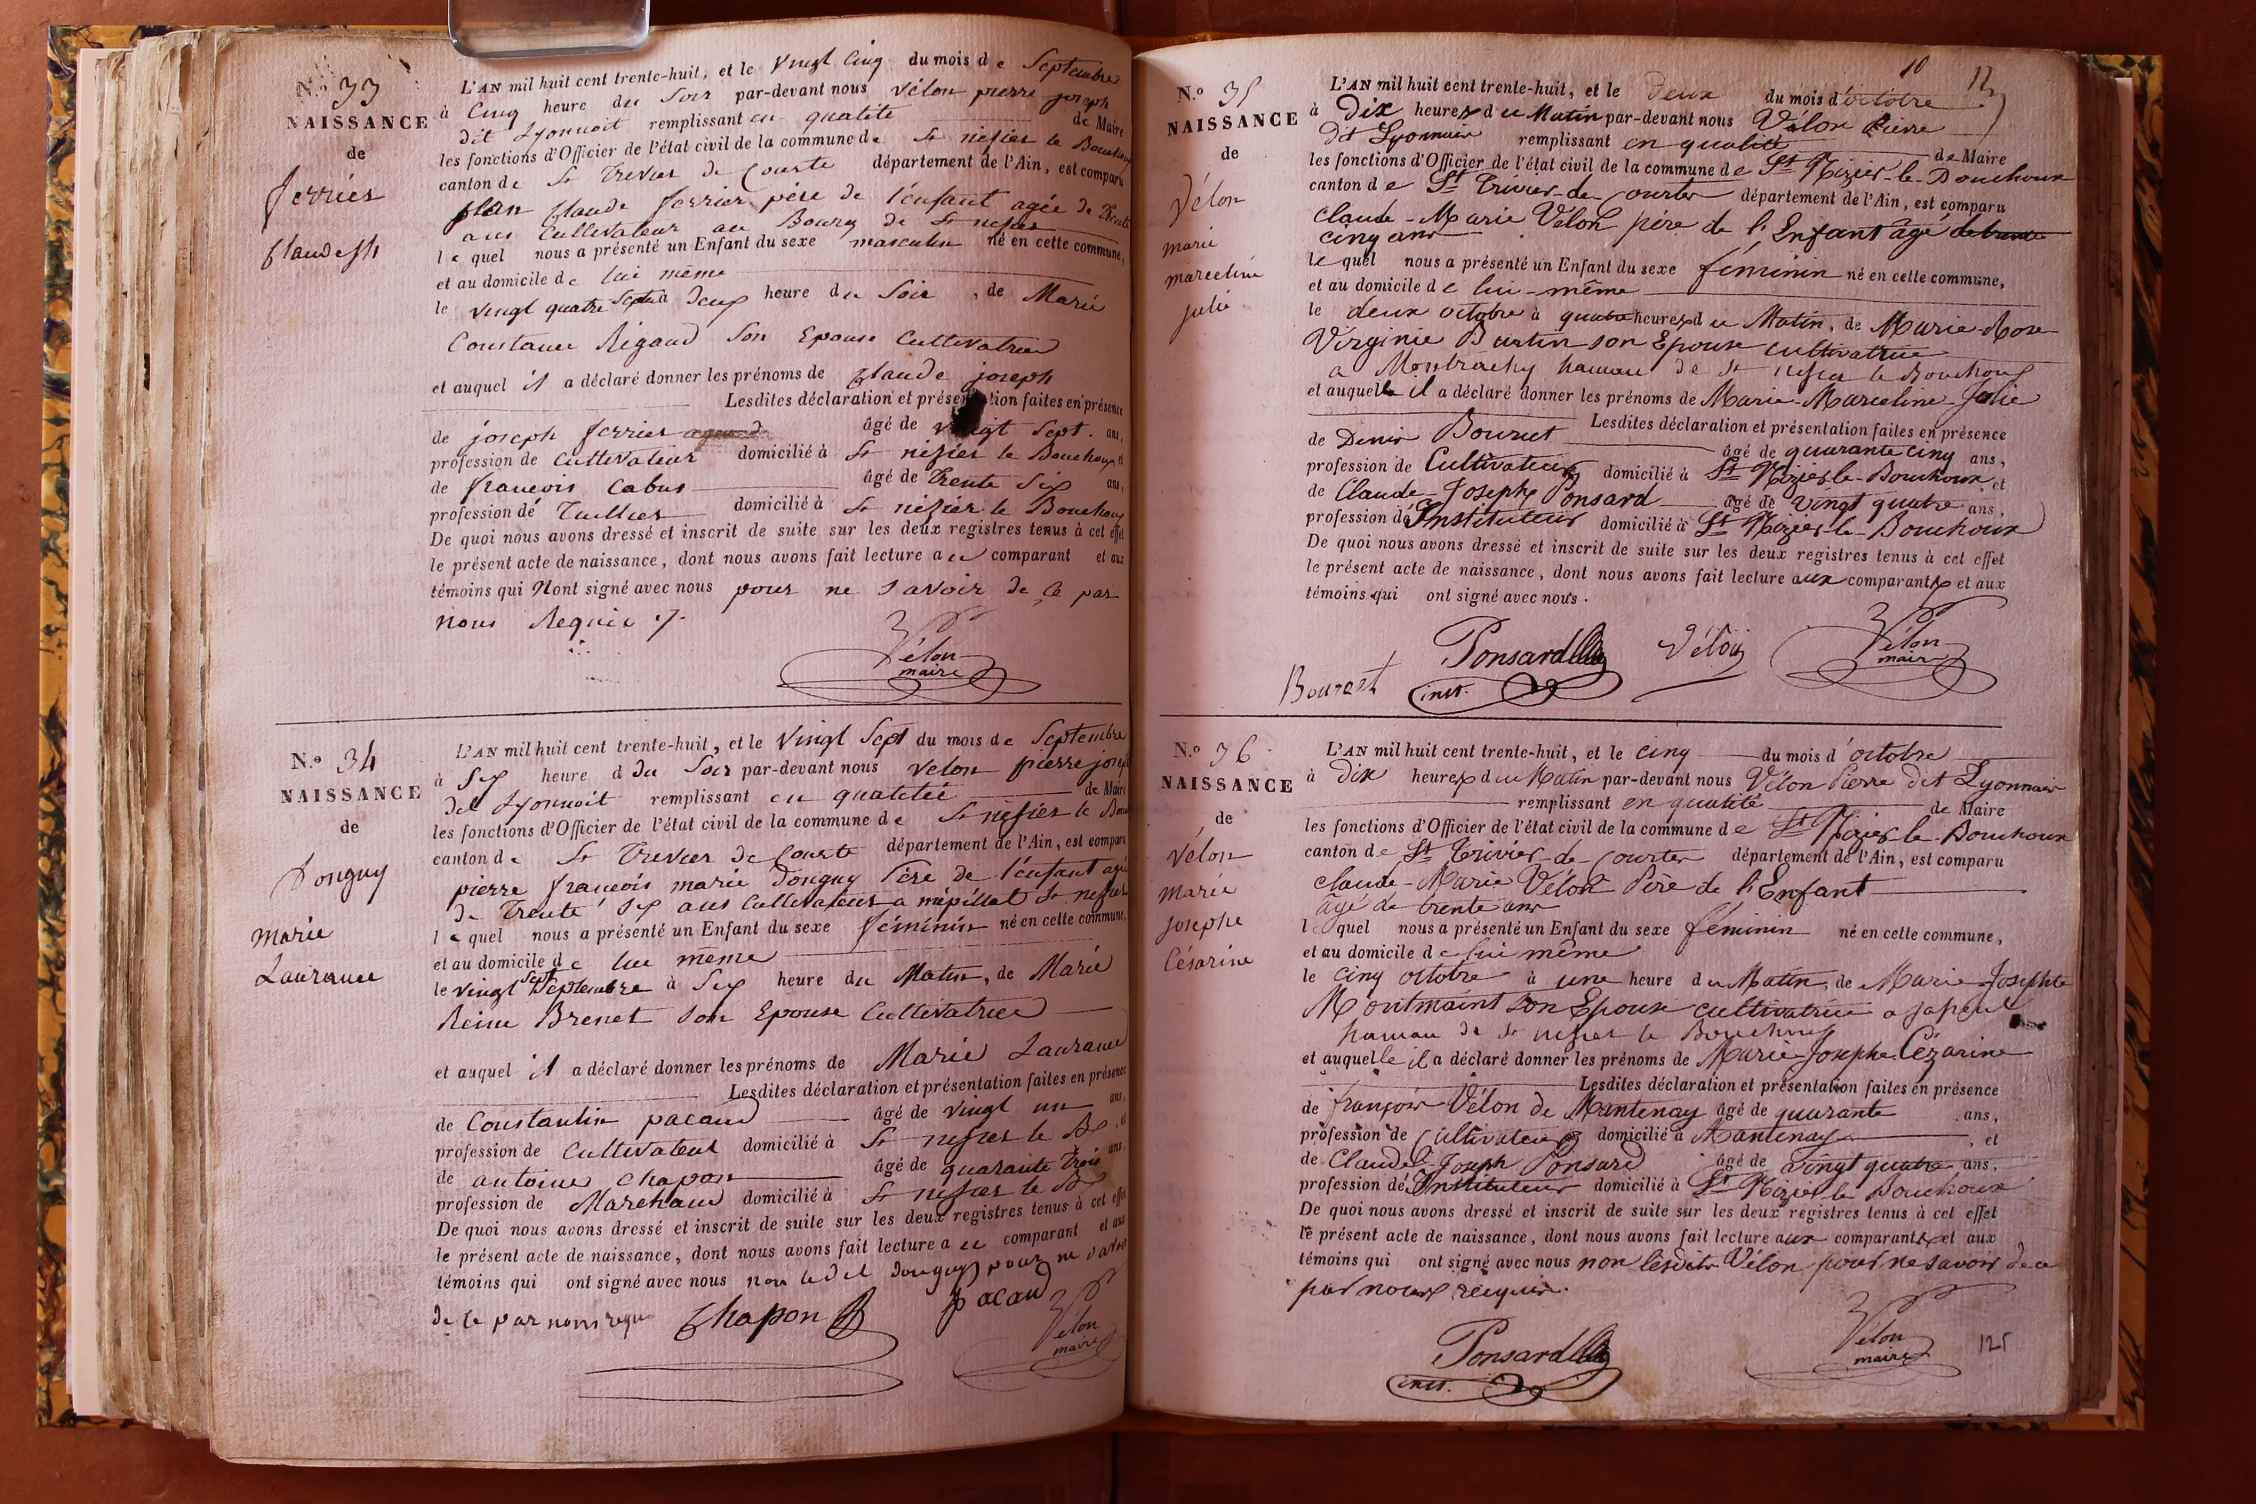 N.o 33
NAISSANCE
de
ferrier
Claude Jh
L'AN mil huit cent trente-huit, et le vingt Cinq du mois de Septembre
à Cinq heure du Soir par-devant nous vélon pierre joseph
dit Lyonnoit remplissant en qualité de Maire
les fonctions d'Officier de l'état civil de la commune de St nisier le Bouchoux
canton de St Trevier de Courte département de l'Ain, est comparu
Claude ferrier père de l'enfant agée de Trente
ans Cultivateur au Bourg de St nisier
le quel nous a présenté un Enfant du sexe masculin né en cette commune,
et au domicile de lui même
le vingt quatre Septe à deux heure du Soir, de Marie
Constance Rigaud son Epouse Cultivatrice
et auquel il a déclaré donner les prénoms de Claude joseph
Lesdites déclaration et présentation faites en présence
de joseph ferrier âgé de vingt Sept ans,
profession de Cultivateur domicilié à St nisier le Bouchoux et
de francois Cabus âgé de Trente Six ans,
profession de Taillier domicilié à St nisier le Bouchoux
De quoi nous avons dressé et inscrit de suite sur les deux registres tenus à cet effet
le présent acte de naissance, dont nous avons fait lecture au comparant et aux
témoins qui Nont signé avec nous pour ne savoir de ce par
nous Requie ./.
Vélon
maire
N.o 34
NAISSANCE
de
Donguy
Marie
Laurance
L'AN mil huit cent trente-huit, et le vingt Sept du mois de Septembre
à Six heure d du Soir par-devant nous velon pierre joseph
dit Lyonnoit remplissant en qualitée de Maire
les fonctions d'Officier de l'état civil de la commune de St nisier le Bou
canton de St Trevier de Courte département de l'Ain, est comparu
pierre francois marie Donguy Père de l'enfant agé
de Trente Six ans Cultivateur a mépillat St nisier
le quel nous a présenté un Enfant du sexe féminin né en cette commune,
et au domicile de lui même
le vingt sept Septembre à Six heure du Matin, de Marie
Reine Brenet son Epouse Cultivatrice
et auquel il a déclaré donner les prénoms de Marie Laurance
Lesdites déclaration et présentation faites en présence
de Constantin pacaud âgé de vingt un ans,
profession de Cultivateur domicilié à St nisier le Bx, et
de antoine Chapon âgé de quarante Trois ans,
profession de Marchand domicilié à St nisier le Bx
De quoi nous avons dressé et inscrit de suite sur les deux registres tenus à cet effet
le présent acte de naissance, dont nous avons fait lecture au comparant et aux
témoins qui ont signé avec nous non ledit donguy pour ne savoir
de ce par nous requi
Chapon
pacaud
Vélon
maire
10 12
N.o 35
NAISSANCE
de
Vélon
marie
marceline
julie
L'AN mil huit cent trente-huit, et le deux du mois d'octobre
à Dix heures du Matin par-devant nous Vélon Pierre
dit Lyonnais remplissant en qualité de Maire
les fonctions d'Officier de l'état civil de la commune de St Nizier-le-Bouchoux
canton de St Trivier-de-Courtes département de l'Ain, est comparu
Claude-Marie Vélon père de l'Enfant âgé de trente
cinq ans
le quel nous a présenté un Enfant du sexe féminin né en cette commune,
et au domicile de lui-même
le deux octobre à quatre heures du Matin, de Marie-Rose
Virginie Burtin son Epouse cultivatrice
a Montrachy hameau de st nisier le Bouchoux
et auquelle il a déclaré donner les prénoms de Marie-Marceline-Julie
Lesdites déclaration et présentation faites en présence
de Denis Bouret âgé de quarante cinq ans,
profession de Cultivateur domicilié à St Nizier-le-Bouchoux, et
de Claude-Joseph Ponsard âgé de vingt quatre ans,
profession d'Instituteur domicilié à St Nizier-le-Bouchoux
De quoi nous avons dressé et inscrit de suite sur les deux registres tenus à cet effet
le présent acte de naissance, dont nous avons fait lecture aux comparants et aux
témoins qui ont signé avec nous.
Ponsard
inst.
Vélon
Vélon
maire
N.o 36
NAISSANCE
de
Vélon
Marie
josephe
Césarine
L'AN mil huit cent trente-huit, et le cinq du mois d'octobre
à Dix heures du Matin par-devant nous Vélon Pierre dit Lyonnais
remplissant en qualité de Maire
les fonctions d'Officier de l'état civil de la commune de St Nizier-le-Bouchoux
canton de St Trivier-de-Courtes département de l'Ain, est comparu
Claude-Marie Vélon Père de l'Enfant
âgé de trente ans
le quel nous a présenté un Enfant du sexe féminin né en cette commune,
et au domicile de lui même
le cinq octobre à une heure du Matin, de Marie-Josephte
Montmaint son Epouse cultivatrice a
hameau de st nisier le Bouchoux
et auquelle il a déclaré donner les prénoms de Marie-Josephe-Cézarine
Lesdites déclaration et présentation faites en présence
de françois Vélon de Mantenay âgé de quarante ans,
profession de Cultivateur domicilié à Mantenay, et
de Claude-Joseph Ponsard âgé de vingt quatre ans,
profession d'Instituteur domicilié à St Nizier-le-Bouchoux
De quoi nous avons dressé et inscrit de suite sur les deux registres tenus à cet effet
le présent acte de naissance, dont nous avons fait lecture aux comparants et aux
témoins qui ont signé avec nous non lesdits Vélon pour ne savoir de ce
par nous requis.
Ponsard
inst.
Vélon
maire
125